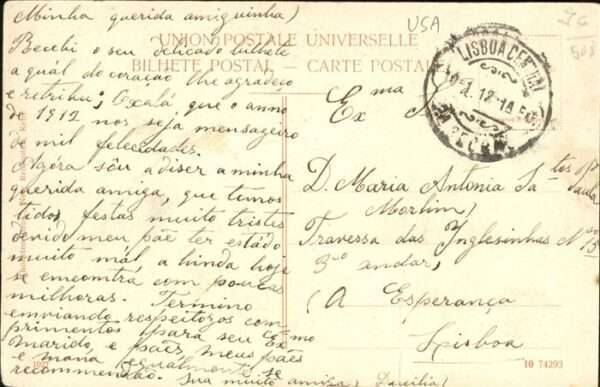 Minha querida amiguinha,
Recebi o seu delicado bilhete
a quál do coração lhe agradeço
e retribu; Oxalá que o anno
de 1912 nos seja mensageiro
de mil felicidades.
Agóra sôu a diser a minha
querida amiga, que temos
tido, festas muito tristes
devido meu páe ter estádo
muito mál, a hinda hoje
se emcontrá com poucas
milhoras. Termino
enviando respeitozos com
primentos para seu Exmo
marido, e páes, meus páes
e mana egualmente se
recommendão. Sua muito amiga,
UNION POSTALE UNIVERSELLE
BILHETE POSTAL — CARTE POSTALE
USA
LISBOA CENTRAL
Exma Sra
D. Maria Antonia Santos
Morlim,
Travessa das Inglesinhas Nº 13
3º andar,
(A Esperança
Lisboa
10 74293